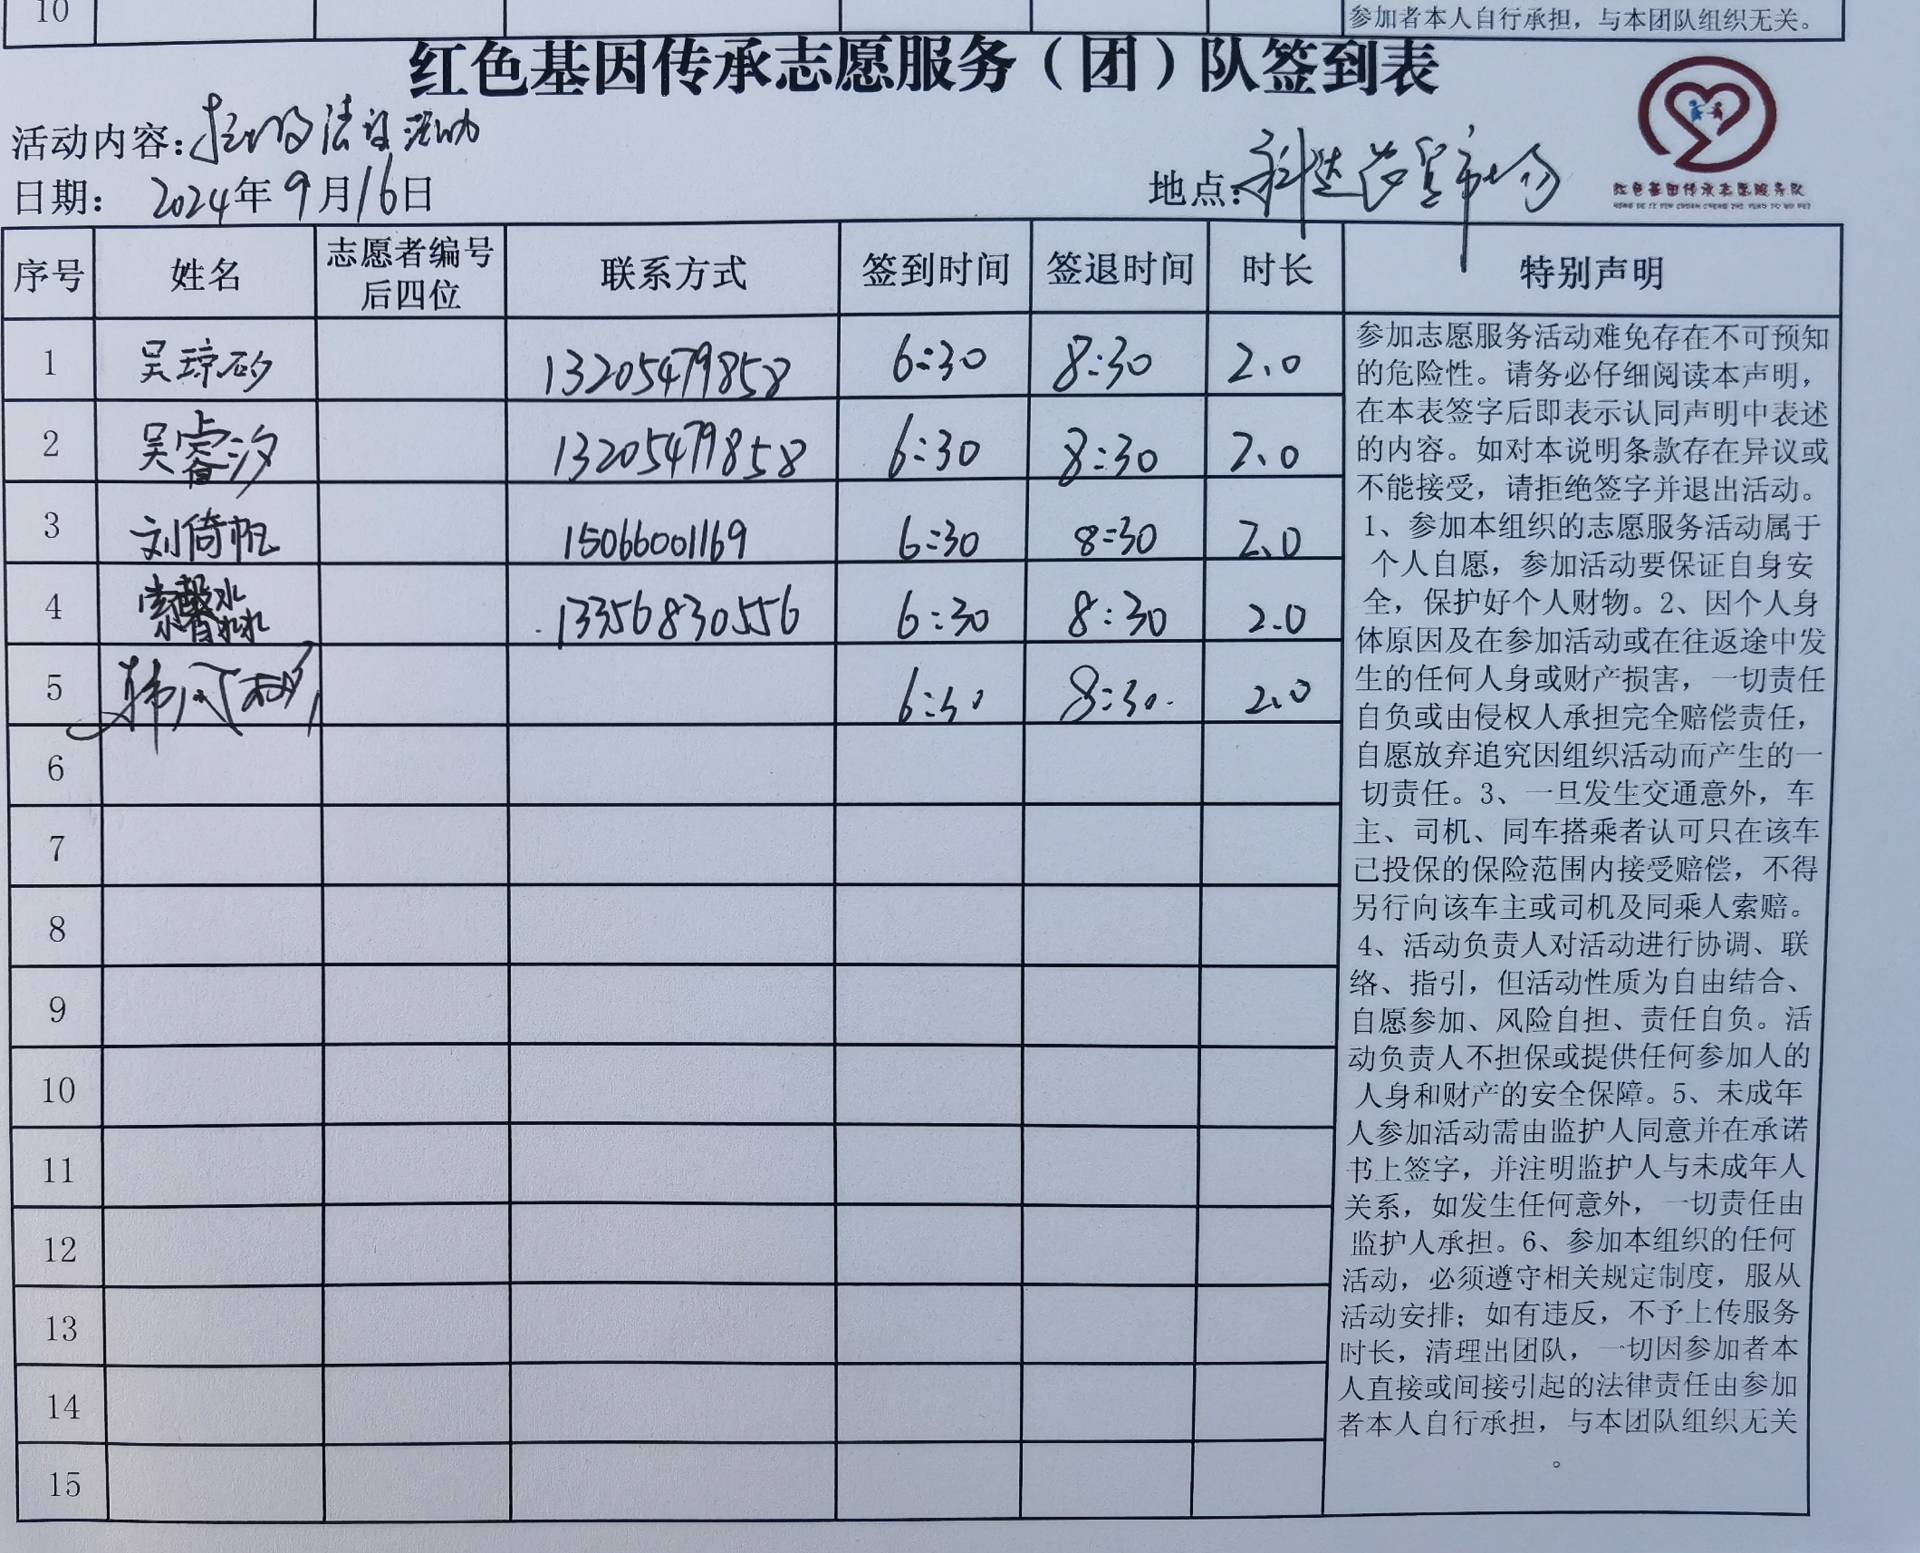 10
参加者本人自行承担，与本团队组织无关。
红色基因传承志愿服务（团）队签到表
活动内容：
日期： 2024年9月16日
地点：
红色基因传承志愿服务队
序号 姓名 志愿者编号后四位 联系方式 签到时间 签退时间 时长 特别声明
1 吴琼矽 13205479858 6:30 8:30 2.0
2 吴睿汐 13205479858 6:30 8:30 2.0
3 刘倚帆 15066001169 6:30 8:30 2.0
4 索馨淼 13356830556 6:30 8:30 2.0
5 6:30 8:30 2.0
6
7
8
9
10
11
12
13
14
15
参加志愿服务活动难免存在不可预知
的危险性。请务必仔细阅读本声明，
在本表签字后即表示认同声明中表述
的内容。如对本说明条款存在异议或
不能接受，请拒绝签字并退出活动。
1、参加本组织的志愿服务活动属于
个人自愿，参加活动要保证自身安
全，保护好个人财物。2、因个人身
体原因及在参加活动或在往返途中发
生的任何人身或财产损害，一切责任
自负或由侵权人承担完全赔偿责任，
自愿放弃追究因组织活动而产生的一
切责任。3、一旦发生交通意外，车
主、司机、同车搭乘者认可只在该车
已投保的保险范围内接受赔偿，不得
另行向该车主或司机及同乘人索赔。
4、活动负责人对活动进行协调、联
络、指引，但活动性质为自由结合、
自愿参加、风险自担、责任自负。活
动负责人不担保或提供任何参加人的
人身和财产的安全保障。5、未成年
人参加活动需由监护人同意并在承诺
书上签字，并注明监护人与未成年人
关系，如发生任何意外，一切责任由
监护人承担。6、参加本组织的任何
活动，必须遵守相关规定制度，服从
活动安排；如有违反，不予上传服务
时长，清理出团队，一切因参加者本
人直接或间接引起的法律责任由参加
者本人自行承担，与本团队组织无关
。